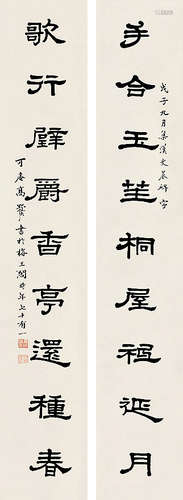 手合玉笙桐屋延月
戊子九月集漢史晨碑字
歌行璧爵香亭還種春
可庵高書於梅王閣時年七十有一